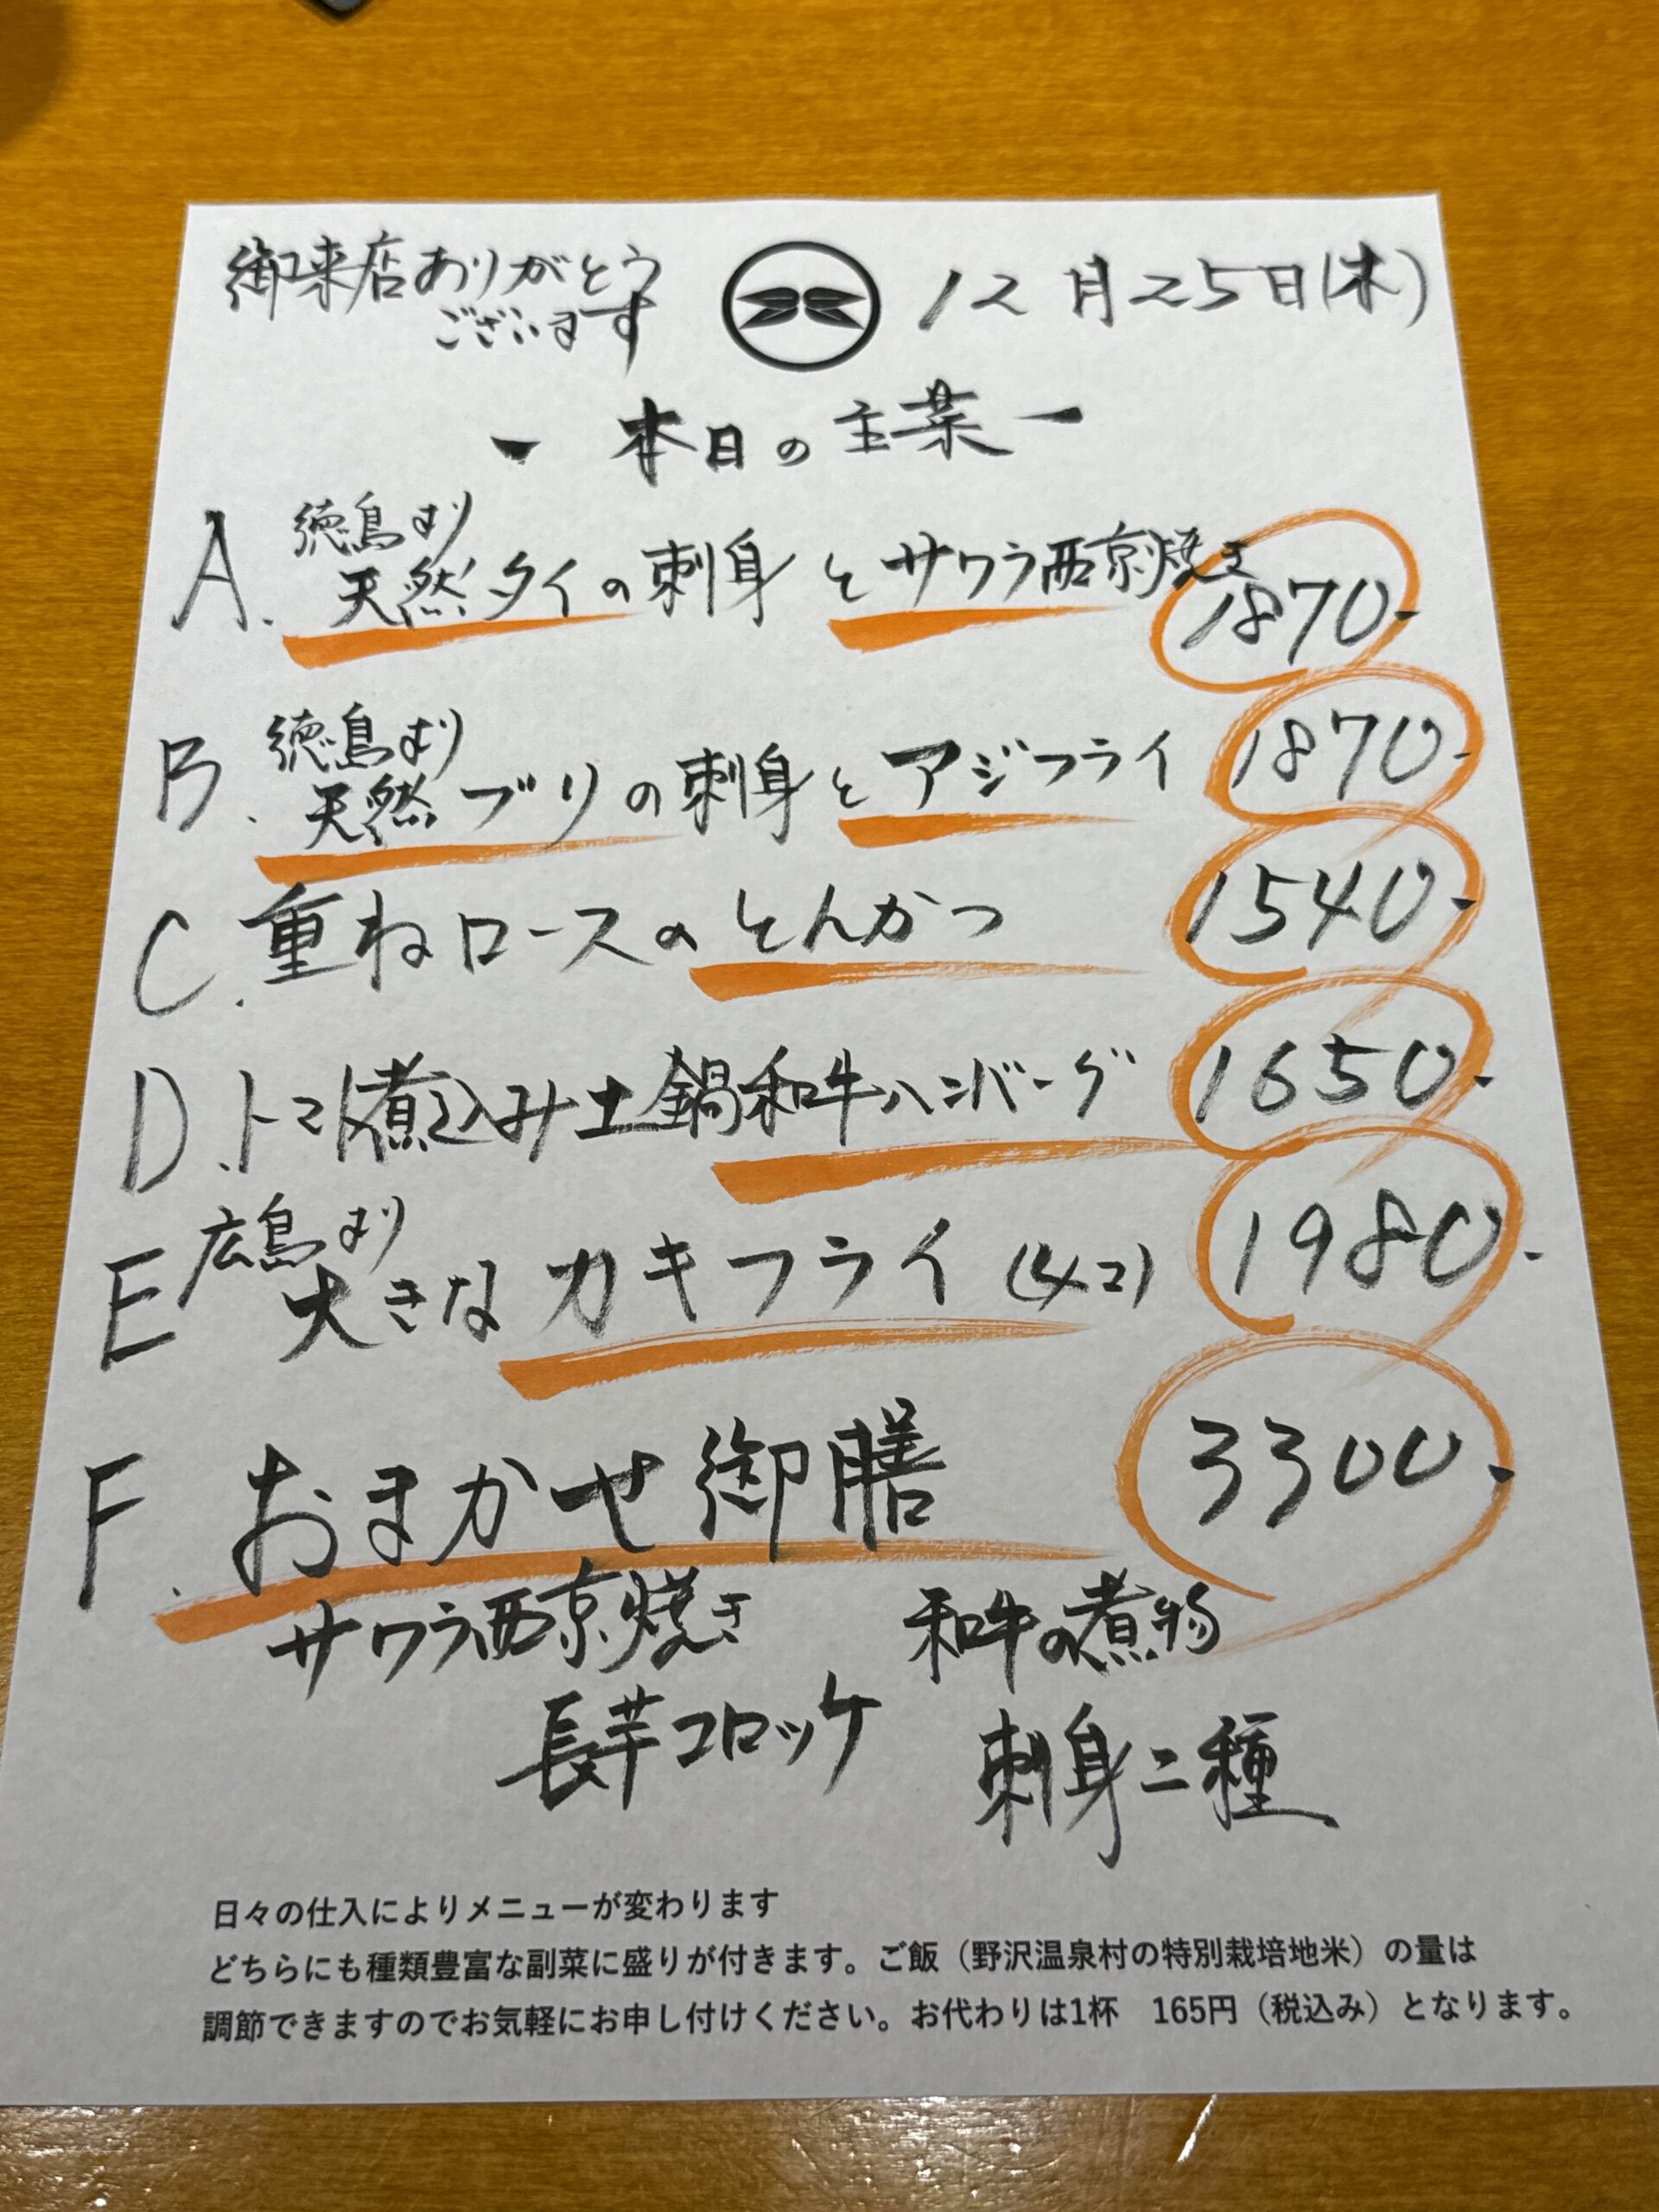 御来店ありがとう
ございます
12月25日(木)
- 本日の主菜 -
A. 徳島より
天然タイの刺身とサワラ西京焼き
1870-
B. 徳島より
天然ブリの刺身とアジフライ 1870-
C. 重ねロースのとんかつ 1540-
D. トマト煮込み土鍋和牛ハンバーグ 1650-
E 広島より
大きなカキフライ (4コ) 1980-
F. おまかせ御膳 3300-
サワラ西京焼き 和牛の煮物
長芋コロッケ 刺身二種
日々の仕入によりメニューが変わります
どちらにも種類豊富な副菜に盛りが付きます。ご飯（野沢温泉村の特別栽培地米）の量は
調節できますのでお気軽にお申し付けください。お代わりは1杯　165円（税込み）となります。